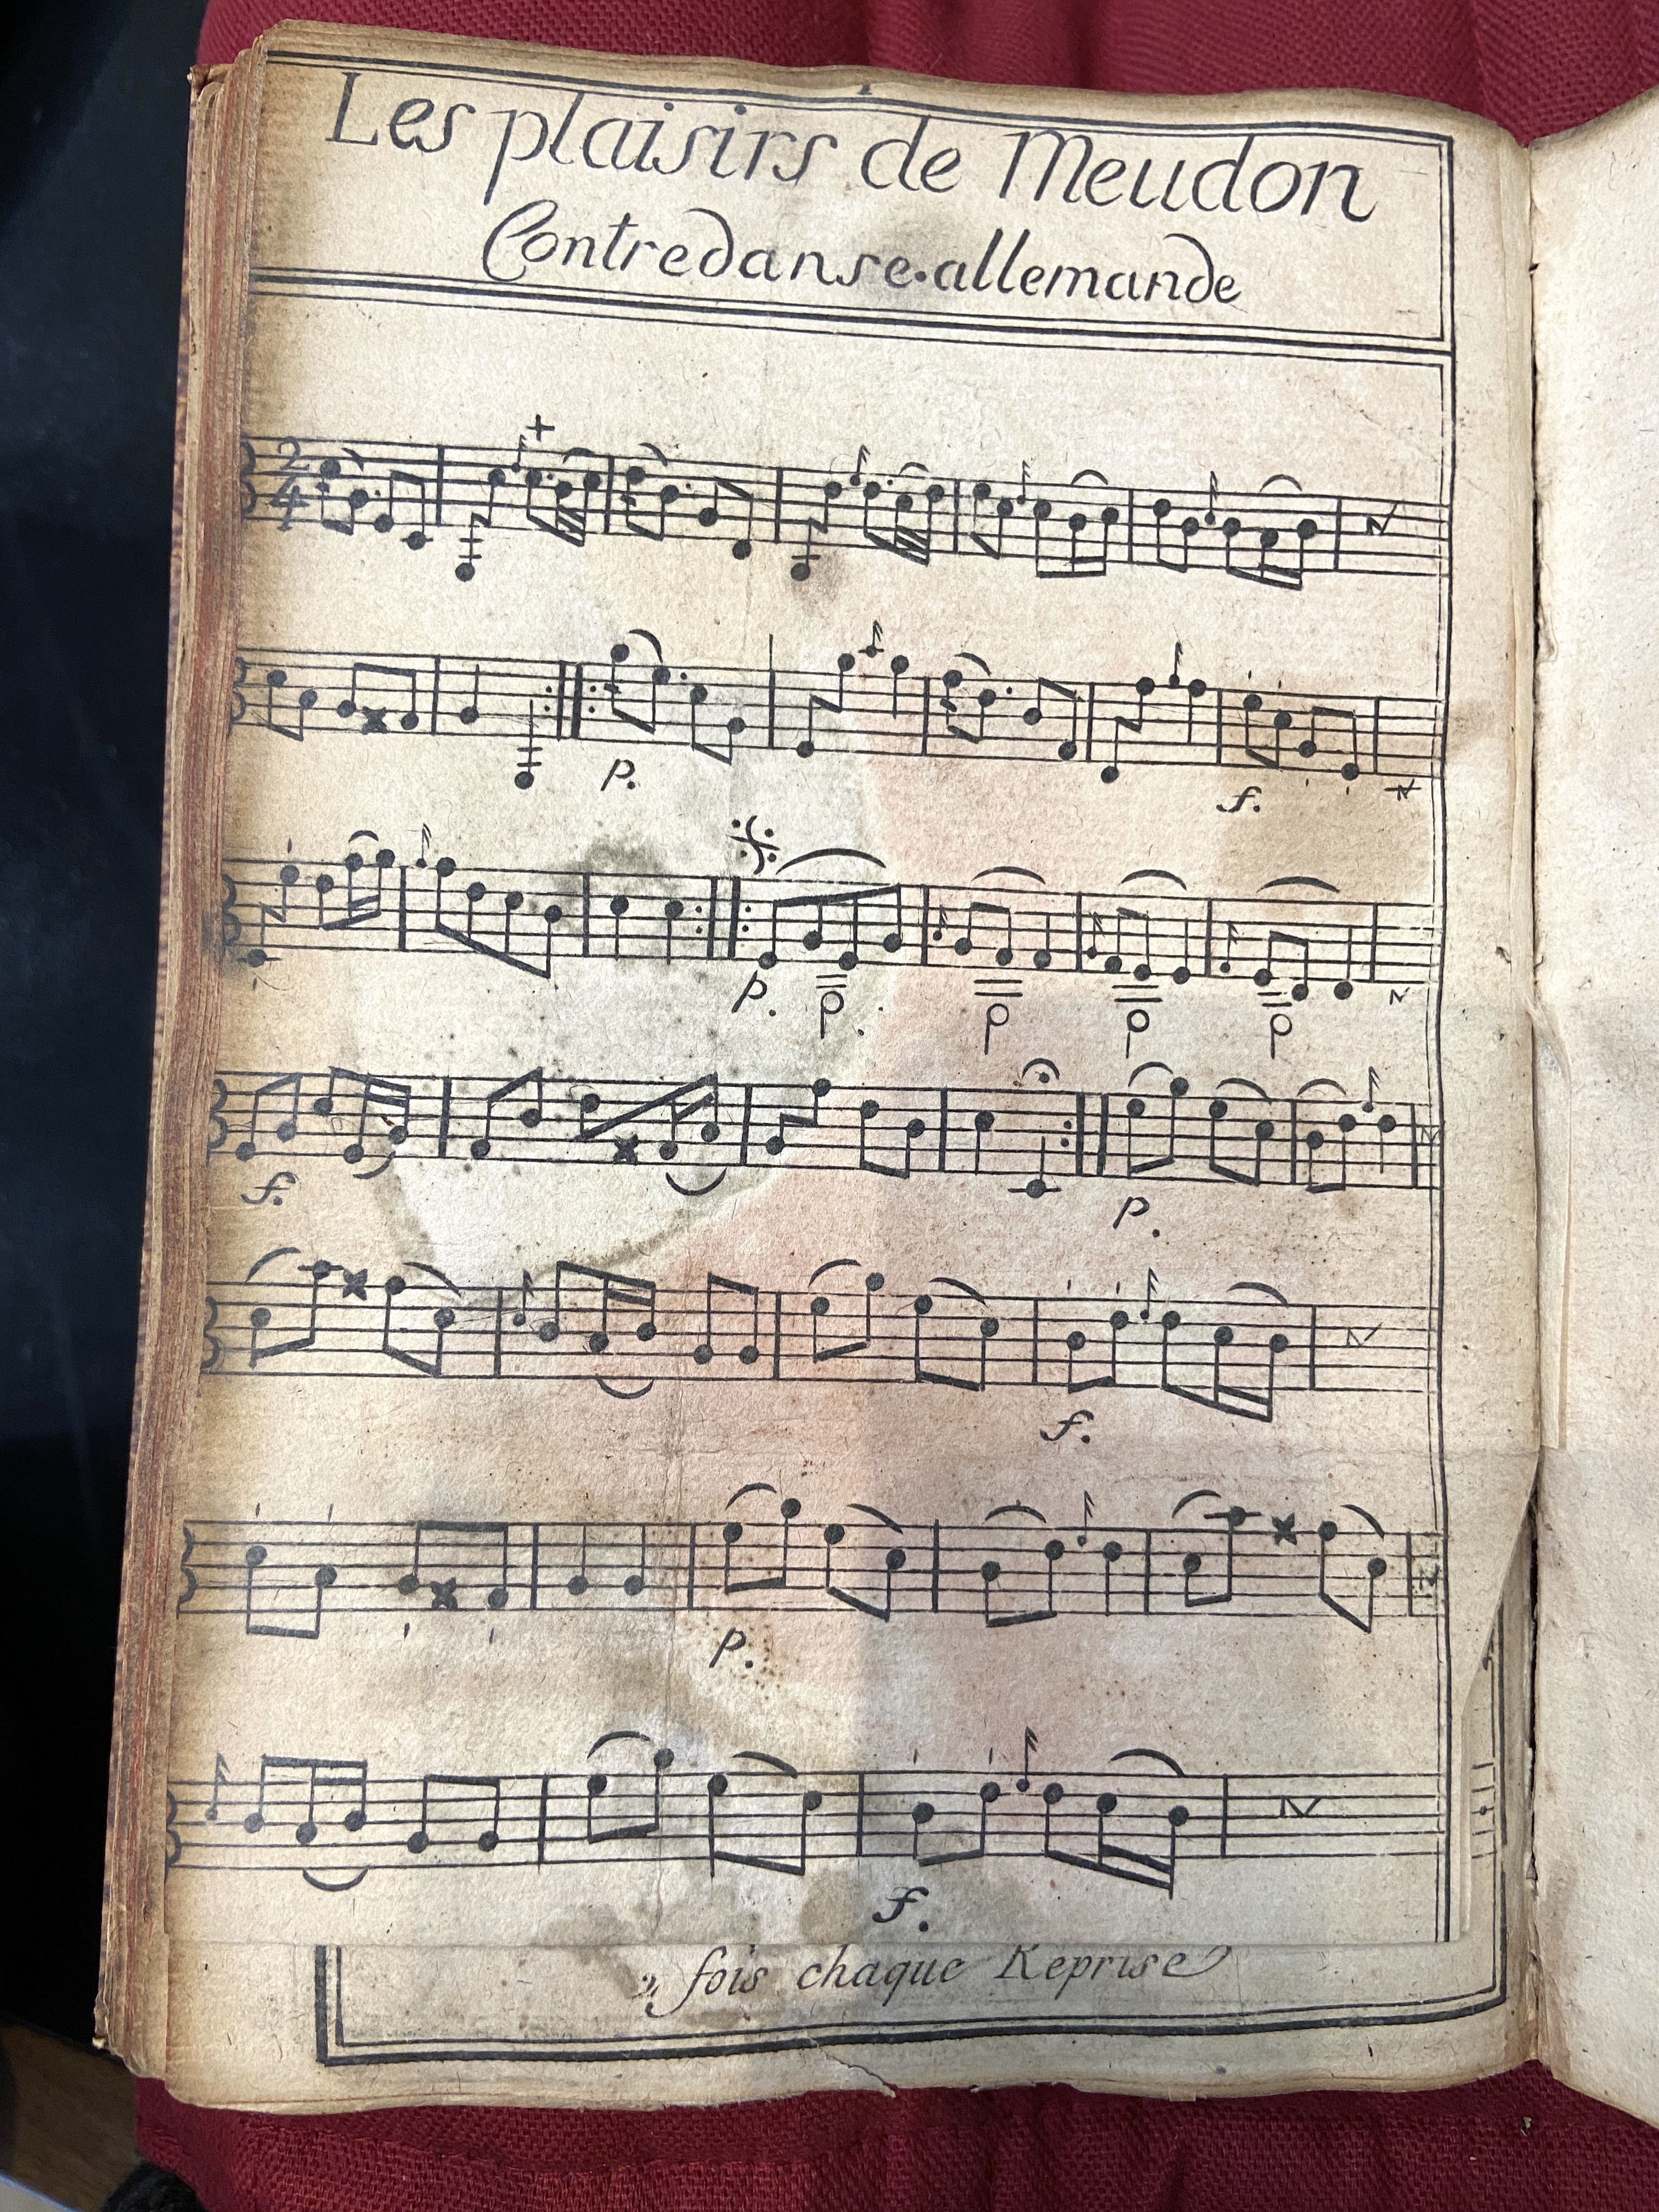 Les plaisirs de Meudon
Contredanse. allemande
2
4
p.
f.
p.
f.
p.
f.
p.
f.
2. fois chaque Reprise